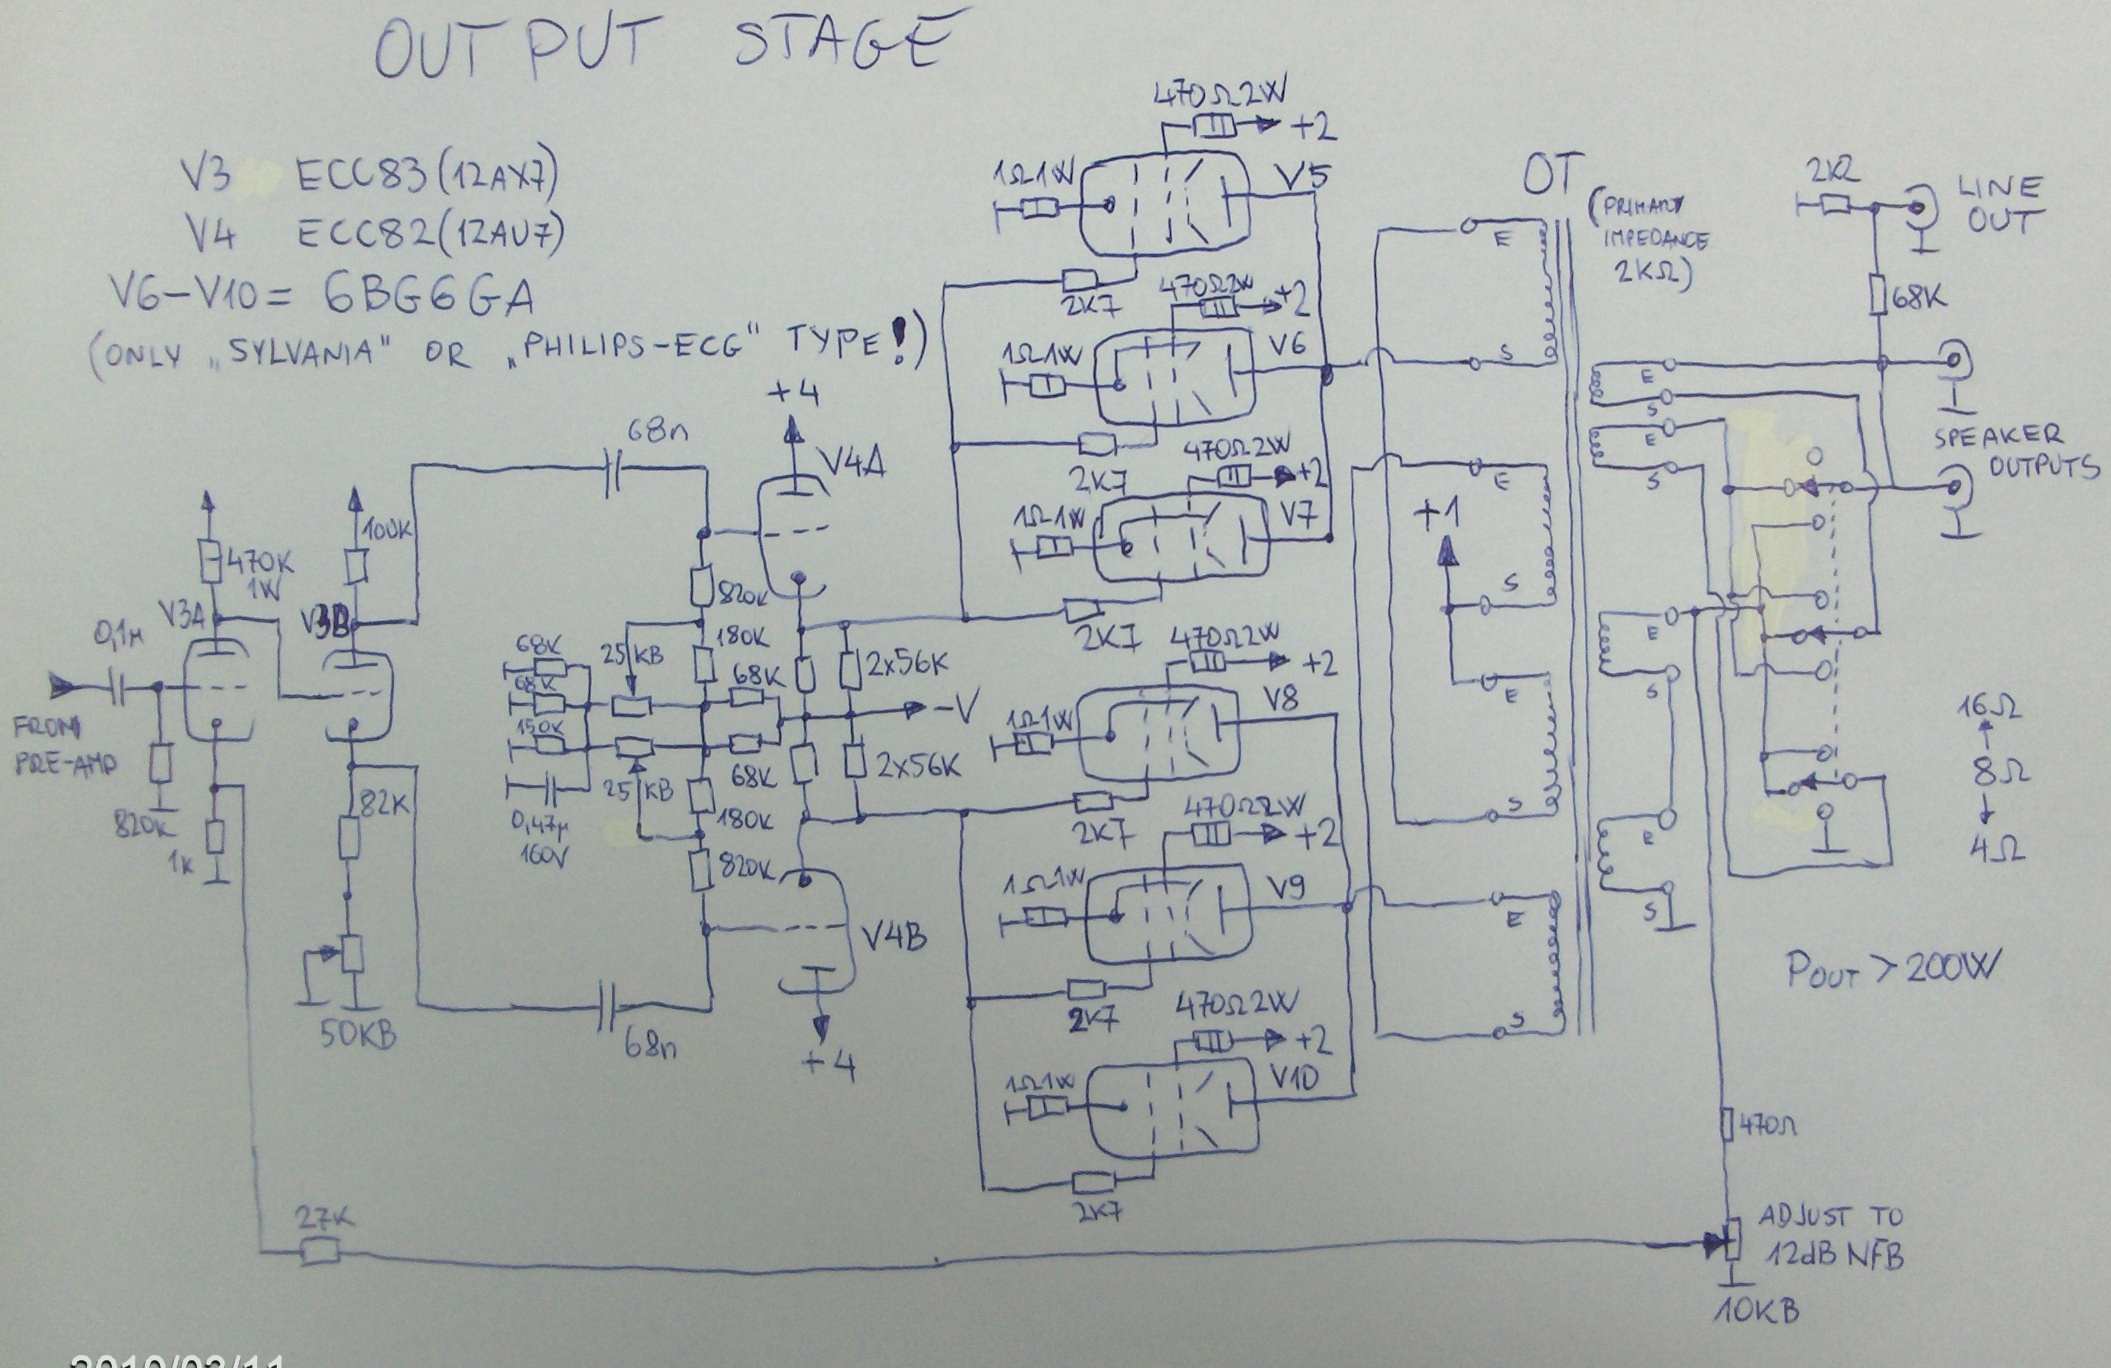 OUTPUT STAGE
V3 ECC83 (12AX7)
V4 ECC82 (12AU7)
V6-V10 = 6BG6GA
(ONLY „SYLVANIA" OR „PHILIPS-ECG" TYPE!)
470Ω2W
+2
1Ω1W
V5
2K7
470Ω2W
+2
1Ω1W
V6
2K7
470Ω2W
+2
1Ω1W
V7
2K7
470Ω2W
+2
1Ω1W
V8
2K7
470Ω2W
+2
1Ω1W
V9
2K7
470Ω2W
+2
1Ω1W
V10
2K7
OT
(PRIMARY
IMPEDANCE
2KΩ)
2K2
LINE
OUT
68K
SPEAKER
OUTPUTS
E
S
E
S
+1
E
S
E
S
E
S
E
S
E
S
E
S
16Ω
8Ω
4Ω
POUT > 200W
470Ω
ADJUST TO
12dB NFB
10KB
+4
V4A
68n
100K
470K
1W
V3A
V3B
0,1μ
FROM
PRE-AMP
820K
1K
82K
50KB
27K
820K
180K
25 KB
68K
68K
150K
0,47μ
160V
25 KB
68K
68K
180K
820K
2x56K
-V
2x56K
V4B
+4
68n